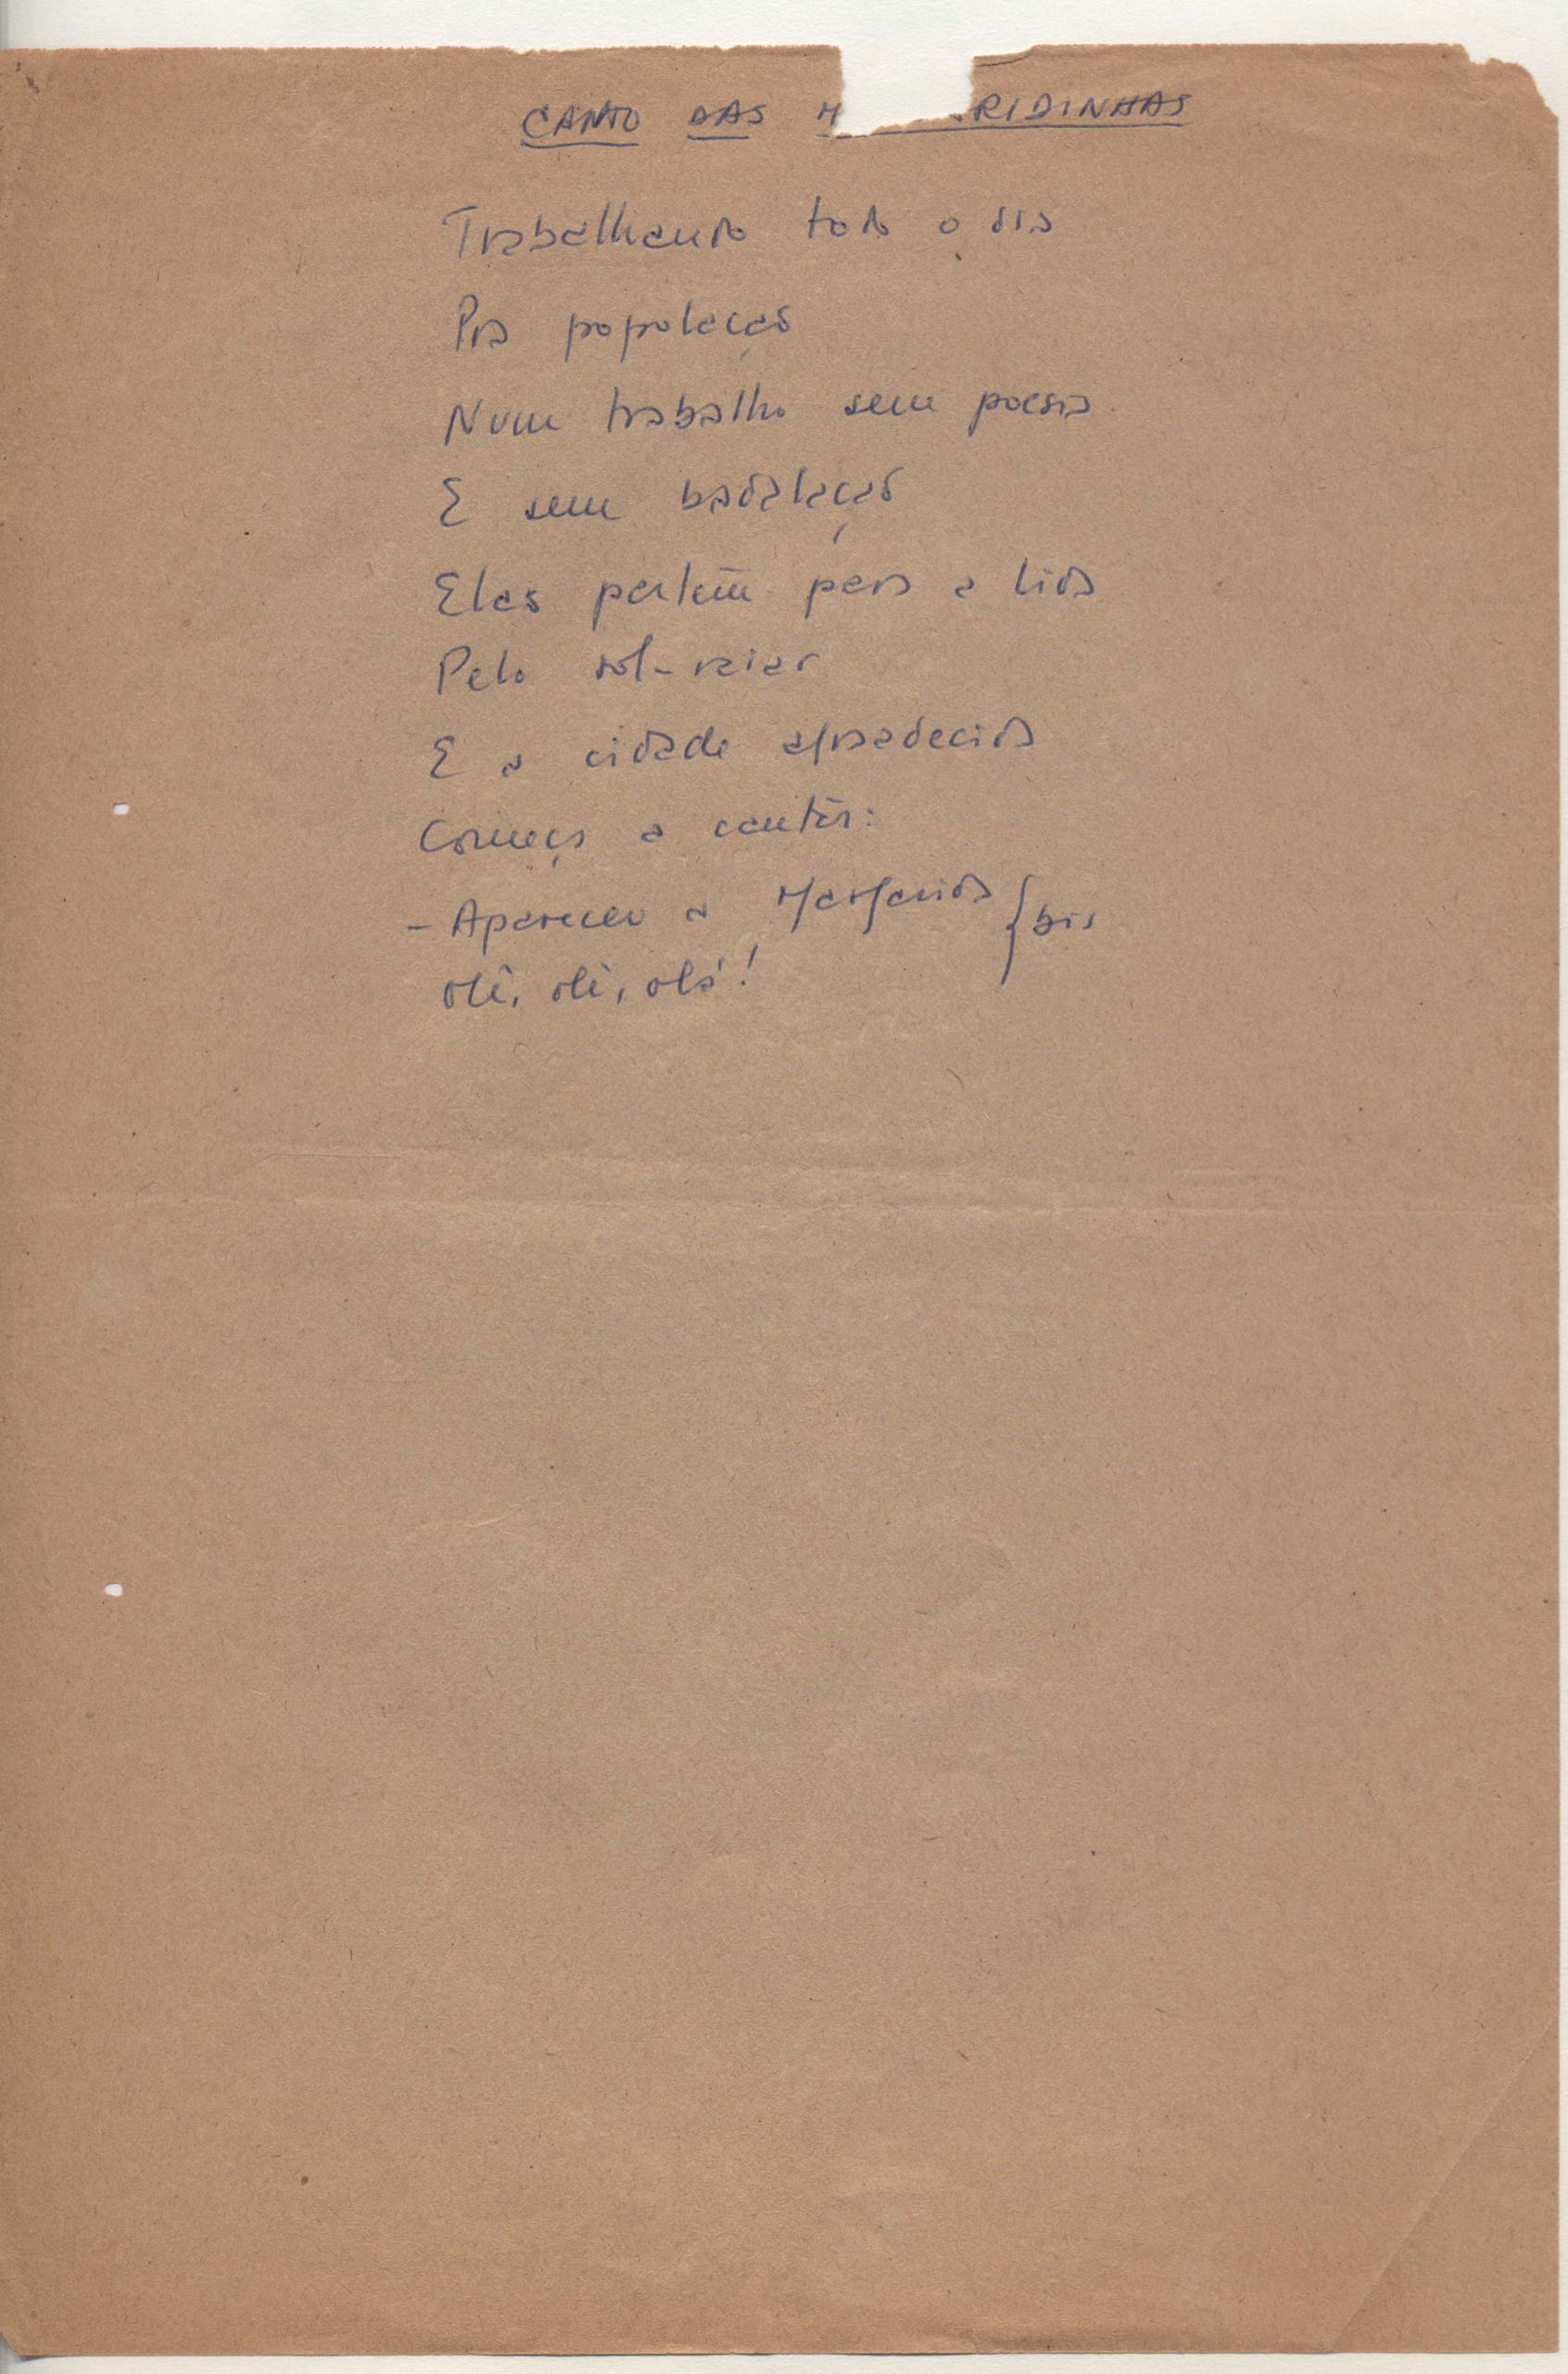 CANTO DAS M RIDINHAS
Trabalhando todo o dia
Pra população
Num trabalho sem poesia
E sem badalação
Elas partem para a lida
Pelo sol-raiar
E a cidade agradecida
Começa a cantar:
- Apareceu a Margarida } bis
olê, olê, olá!